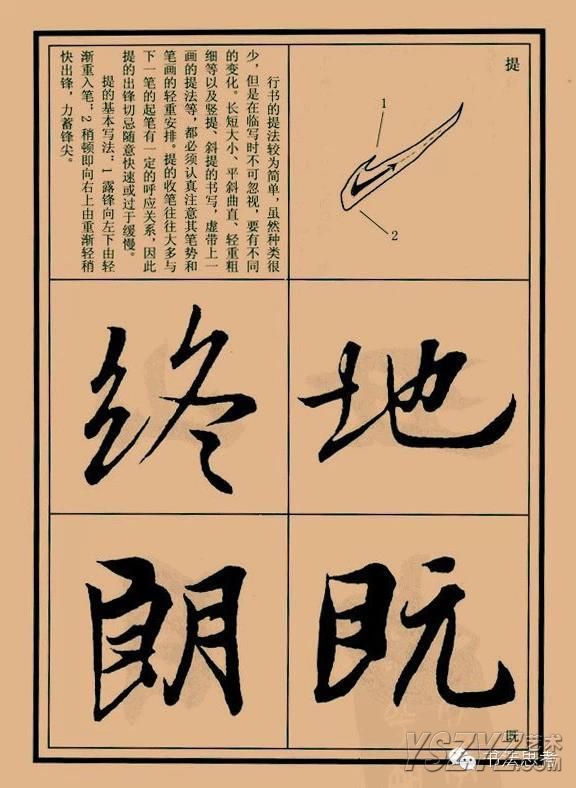 提
1
2
行书的提法较为简单，虽然种类很
少，但是在临写时不可忽视，要有不同
的变化。长短大小、平斜曲直、轻重粗
细等以及竖提、斜提的书写，虚带上一
画的提法等，都必须认真注意其笔势和
笔画的轻重安排。提的收笔往往大多与
下一笔的起笔有一定的呼应关系，因此
提的出锋切忌随意快速或过于缓慢。
提的基本写法：1 露锋向左下由轻
渐重入笔；2 稍顿即向右上由重渐轻稍
快出锋，力蓄锋尖。
地
终
既
朗
既
书法思考